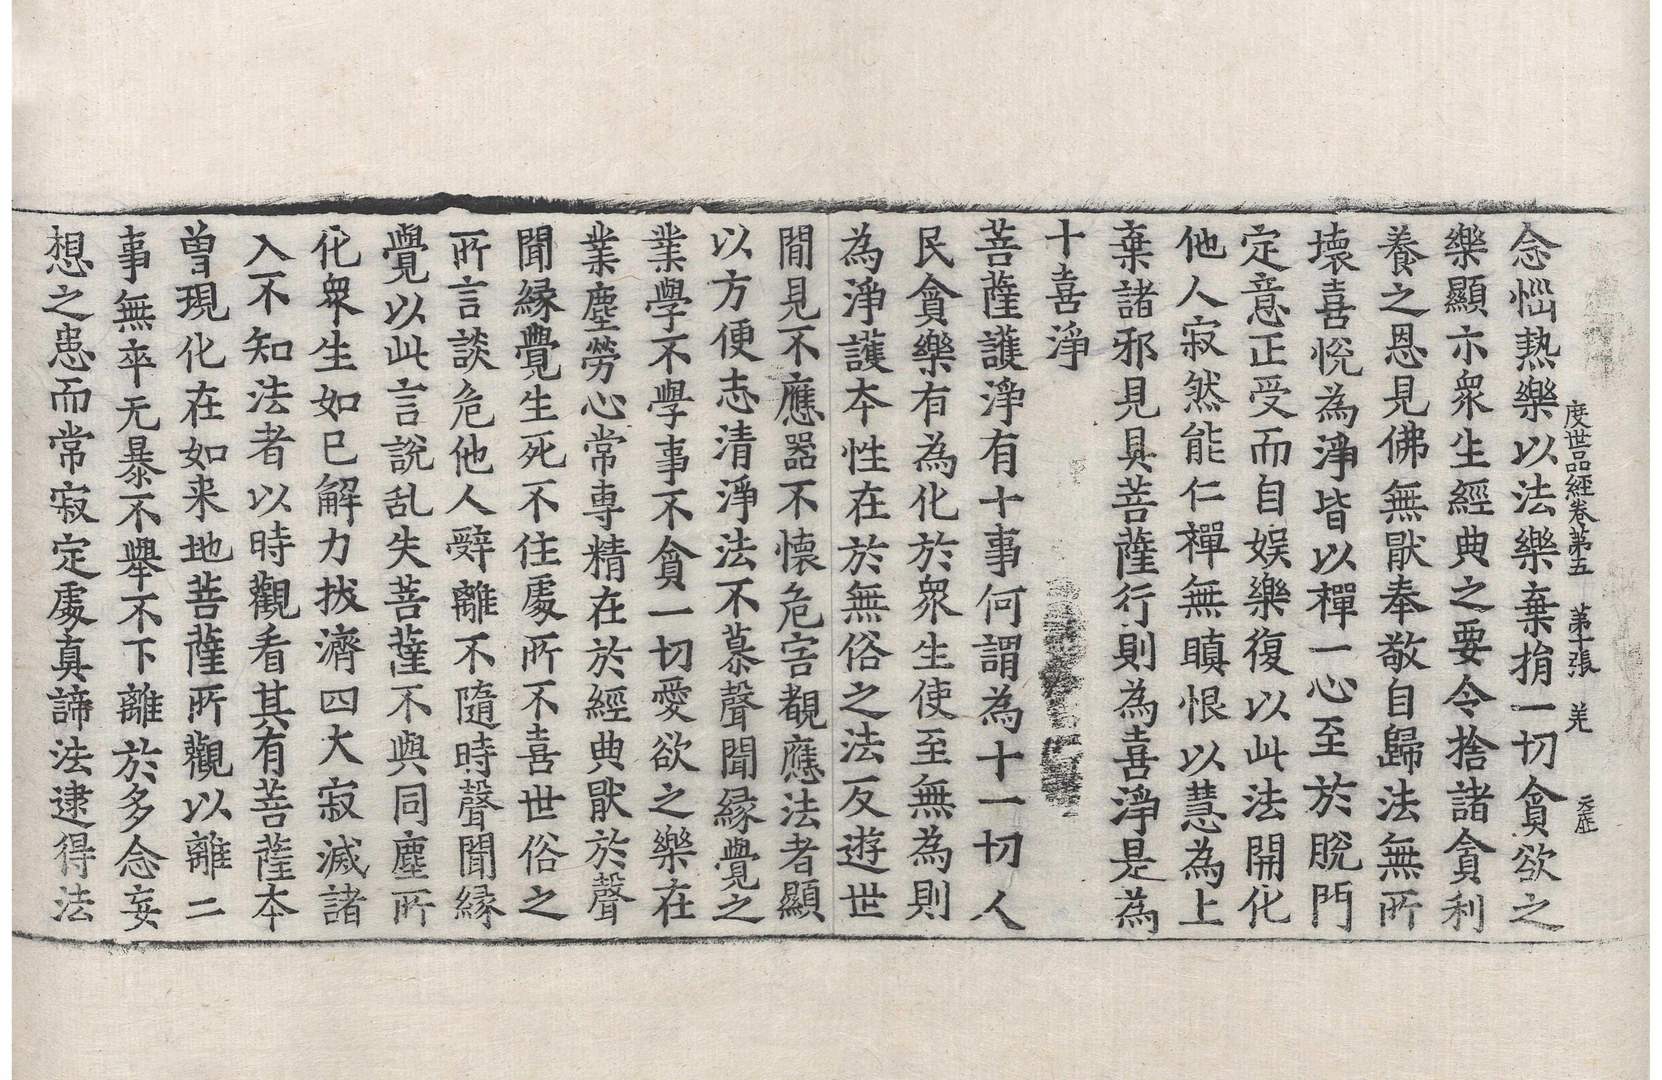 度世品經卷第五　第十張　羌
念惱熱樂以法樂棄捐一切貪欲之
樂顯示衆生經典之要令捨諸貪利
養之恩見佛無猒奉敬自歸法無所
壞喜悅為淨皆以禪一心至於脫門
定意正受而自娛樂復以此法開化
他人寂然能仁禪無瞋恨以慧為上
棄諸邪見具菩薩行則為喜淨是為
十喜淨
菩薩護淨有十事何謂為十一切人
民貪樂有為化於衆生使至無為則
為淨護本性在於無俗之法反遊世
間見不應器不懷危害覩應法者顯
以方便志清淨法不慕聲聞緣覺之
業學不學事不貪一切愛欲之樂在
業塵勞心常專精在於經典猒於聲
聞緣覺生死不住處所不喜世俗之
所言談危他人辤離不隨時聲聞緣
覺以此言說乱失菩薩不與同塵所
化衆生如已解力拔濟四大寂滅諸
入不知法者以時觀看其有菩薩本
曽現化在如来地菩薩所觀以離二
事無卒无暴不舉不下離於多念妄
想之患而常寂定處真諦法逮得法